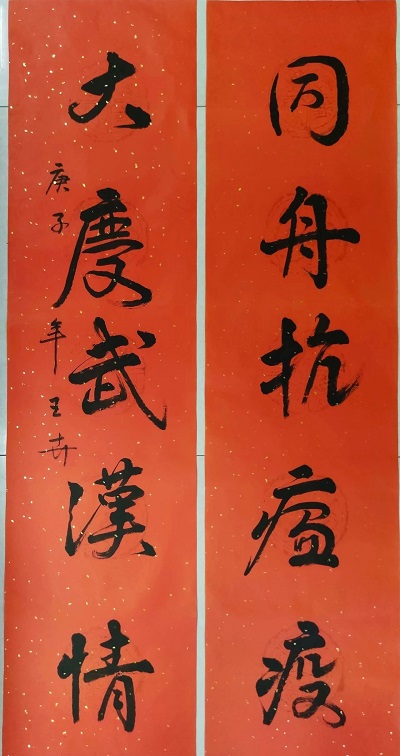 同舟抗瘟疫
大慶武漢情
庚子年王卉